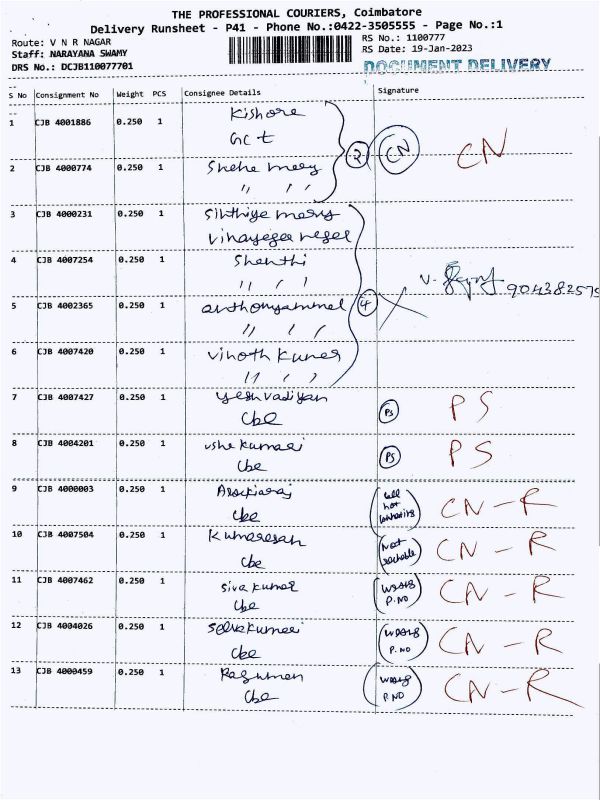 THE PROFESSIONAL COURIERS, Coimbatore
Delivery Runsheet - P41 - Phone No.:0422-3505555 - Page No.:1
Route: V N R NAGAR
RS No.: 1100777
Staff: NARAYANA SWAMY
RS Date: 19-Jan-2023
DRS No.: DCJB110077701
DOCUMENT DELIVERY
S No Consignment No Weight PCS Consignee Details Signature
1 CJB 4001886 0.250 1 Kishore
GCT
2 CN CN
2 CJB 4000774 0.250 1 Snehe mery
" " "
3 CJB 4000231 0.250 1 Sinthiye mery
Vinayegar neger
4 CJB 4007254 0.250 1 Shenthi
" " "
V. 904382575
5 CJB 4002365 0.250 1 anthonyammel 4
" " "
6 CJB 4007420 0.250 1 Vinoth Kumer
" " "
7 CJB 4007427 0.250 1 yeshvadiyan
Cbe PS PS
8 CJB 4004201 0.250 1 ushe kumaari
Cbe PS PS
9 CJB 4000003 0.250 1 Arockiaraj Call not CN-R
Cbe
10 CJB 4007504 0.250 1 Kumaresan Not reachable CN-R
Cbe
11 CJB 4007462 0.250 1 Siva kumar Wrong P.NO CN-R
Cbe
12 CJB 4004026 0.250 1 Selvakumeri Wrong P.NO CN-R
Cbe
13 CJB 4000459 0.250 1 Ragumen Wrong P.NO CN-R
Cbe